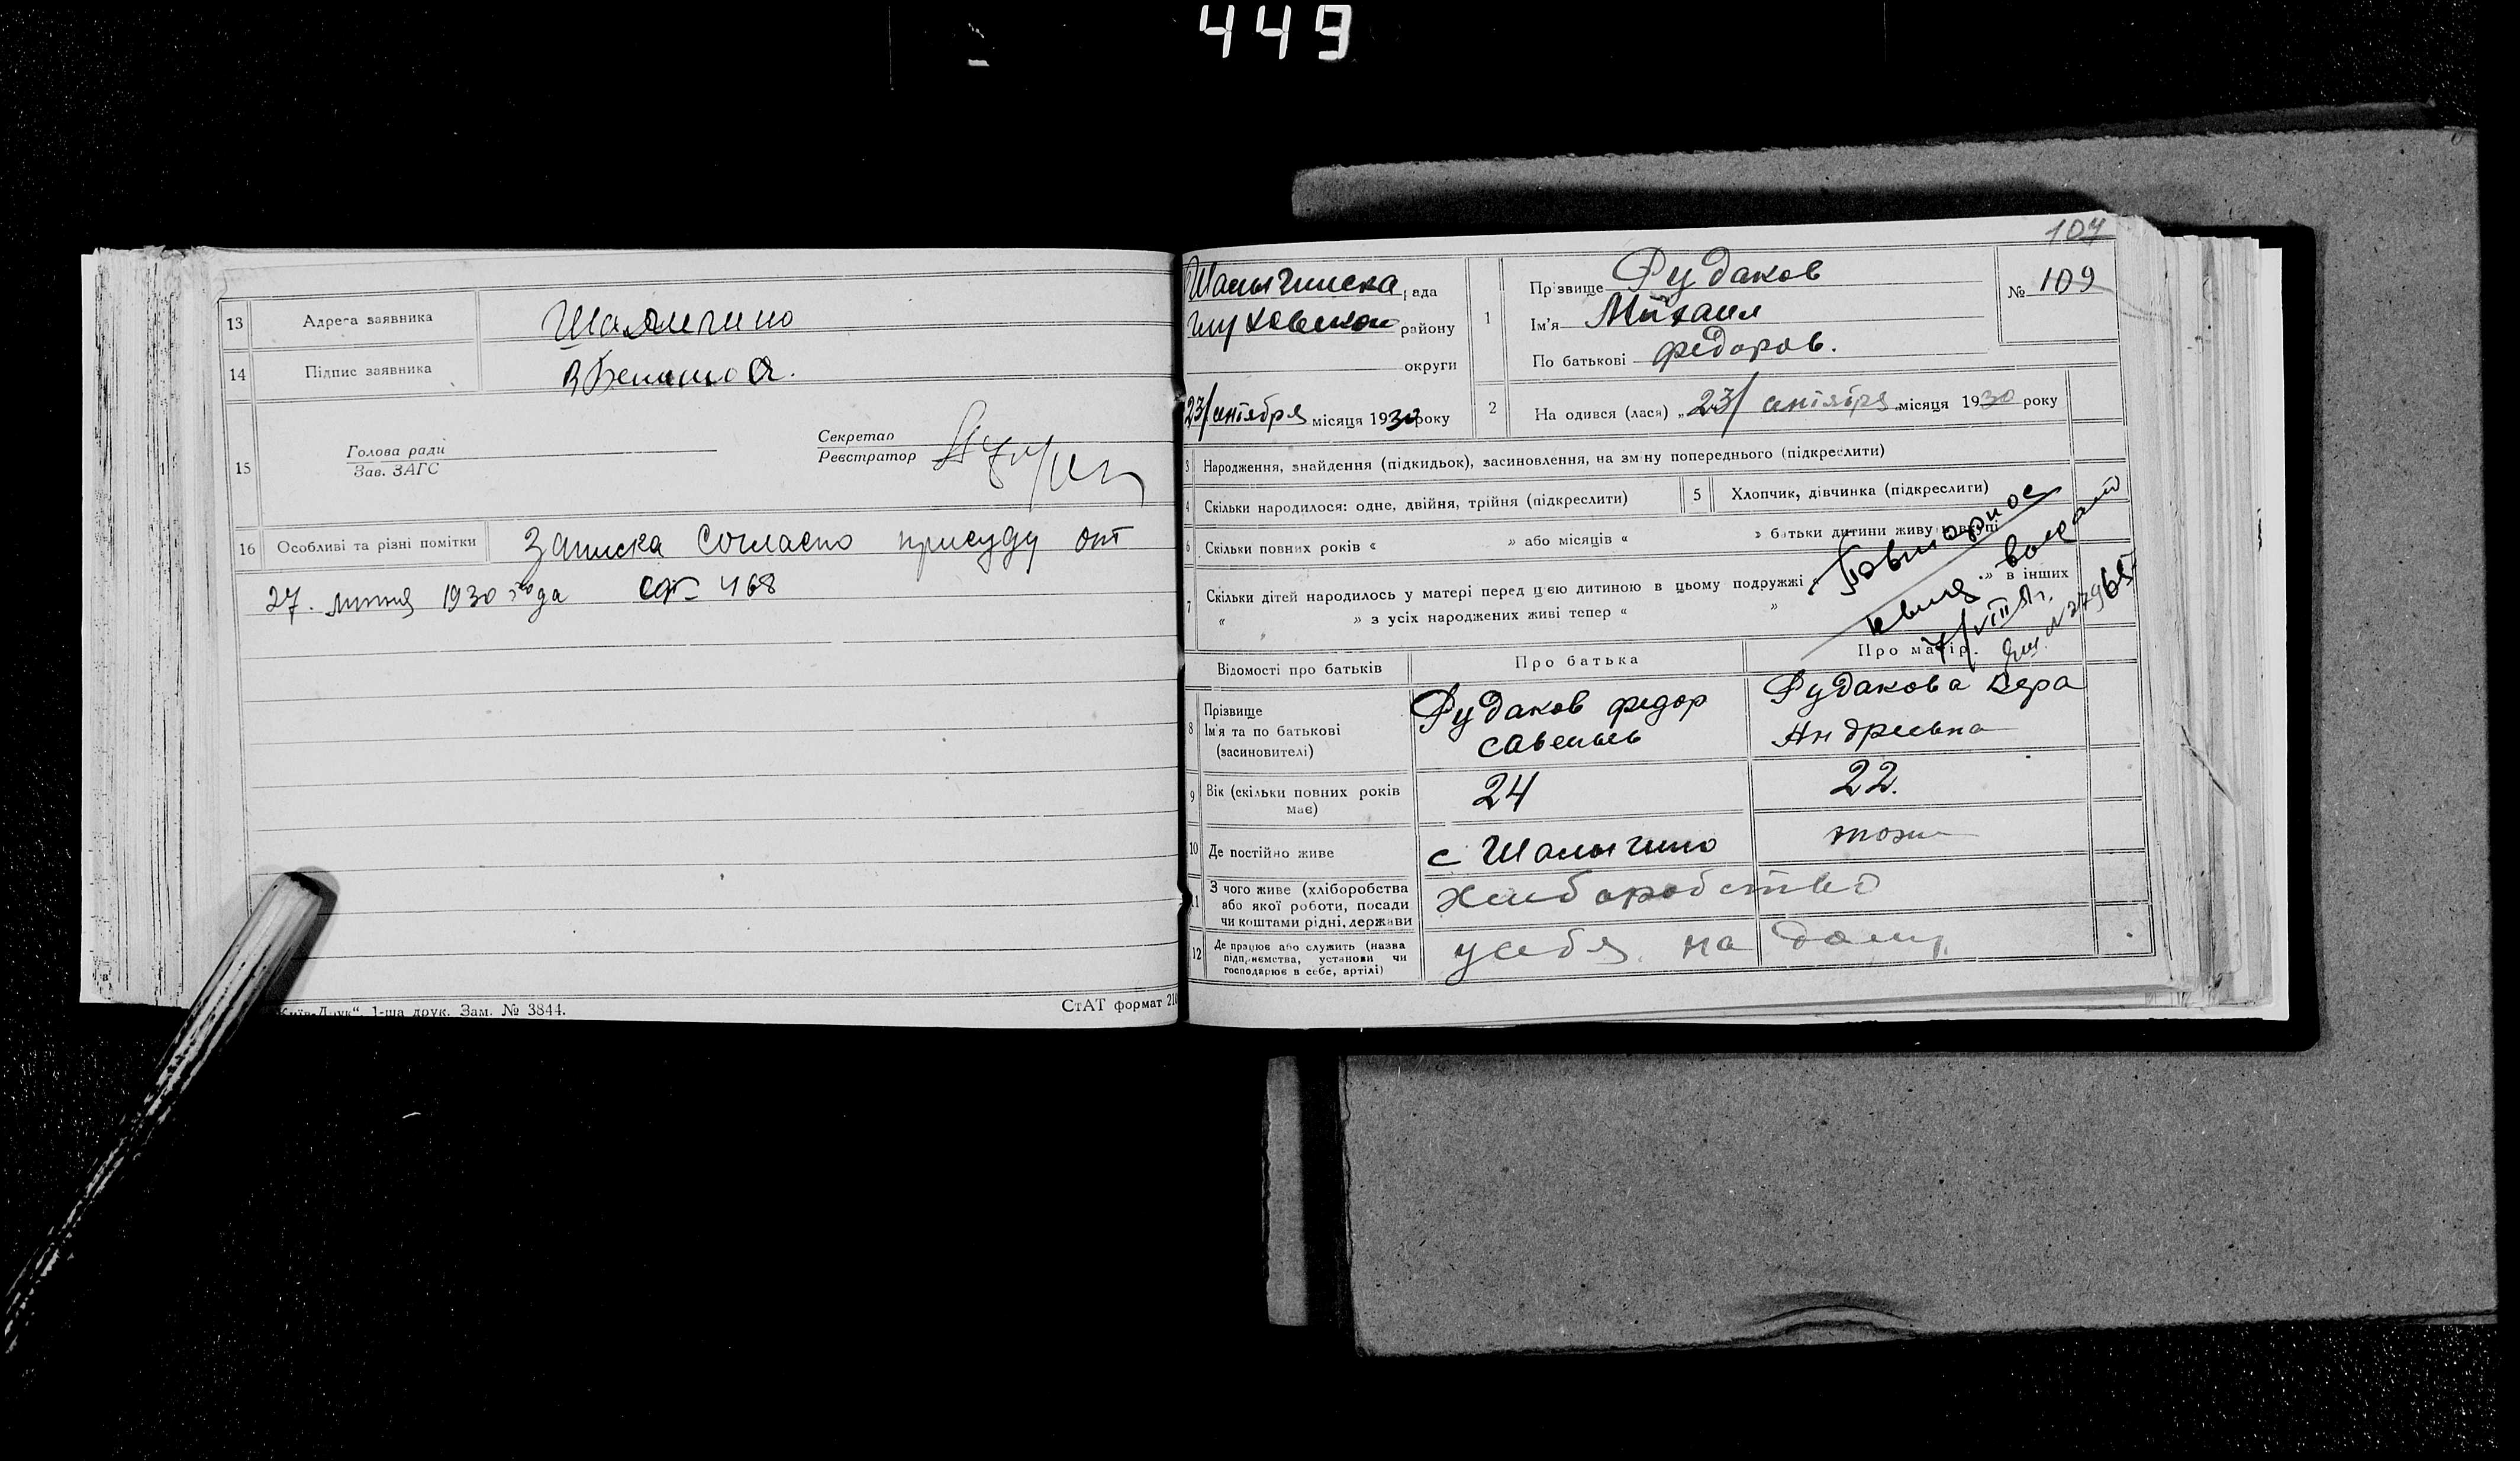 449
13 Адреса заявника Шалыгино
14 Підпис заявника
15 Голова ради
Зав. ЗАГС
Секретар
Реєстратор
16 Особливі та різні помітки Записка согласно присуду от
27. липня 1930 года 468
"Київ-Друк“. 1-ша друк. Зам. № 3844.
СтАТ формат 210
104
Шалыгинска рада
Глуховского району
округи
23/сентября місяця 1930 року
1 Прізвище Рудаков
Ім'я Михаил
По батькові Федоров.
№ 109
2 На одився (лася) „23/ сентября місяця 1930 року
3 Народження, знайдення (підкидьок), засиновлення, на зміну попереднього (підкреслити)
4 Скільки народилося: одне, двійня, трійня (підкреслити)
5 Хлопчик, дівчинка (підкреслити)
6 Скільки повних років « » або місяців « » батьки дитини живу
7 Скільки дітей народилось у матері перед цією дитиною в цьому подружжі « » в інших
« » з усіх народжених живі тепер « »
Повторное
VIII
№ 27965
Відомості про батьків Про батька Про матір.
8 Прізвище
Ім'я та по батькові
(засиновителі)
Рудаков Федор
Савельев
Рудакова Вера
Андреевна
9 Вік (скільки повних років
має)
24 22.
10 Де постійно живе с Шалыгино тоже
11 З чого живе (хліборобства
або якої роботи, посади
чи коштами рідні, держави
хлиборобство
12 Де працює або служить (назва
підприємства, установи чи
господарює в себе, артілі)
у себя на дому.